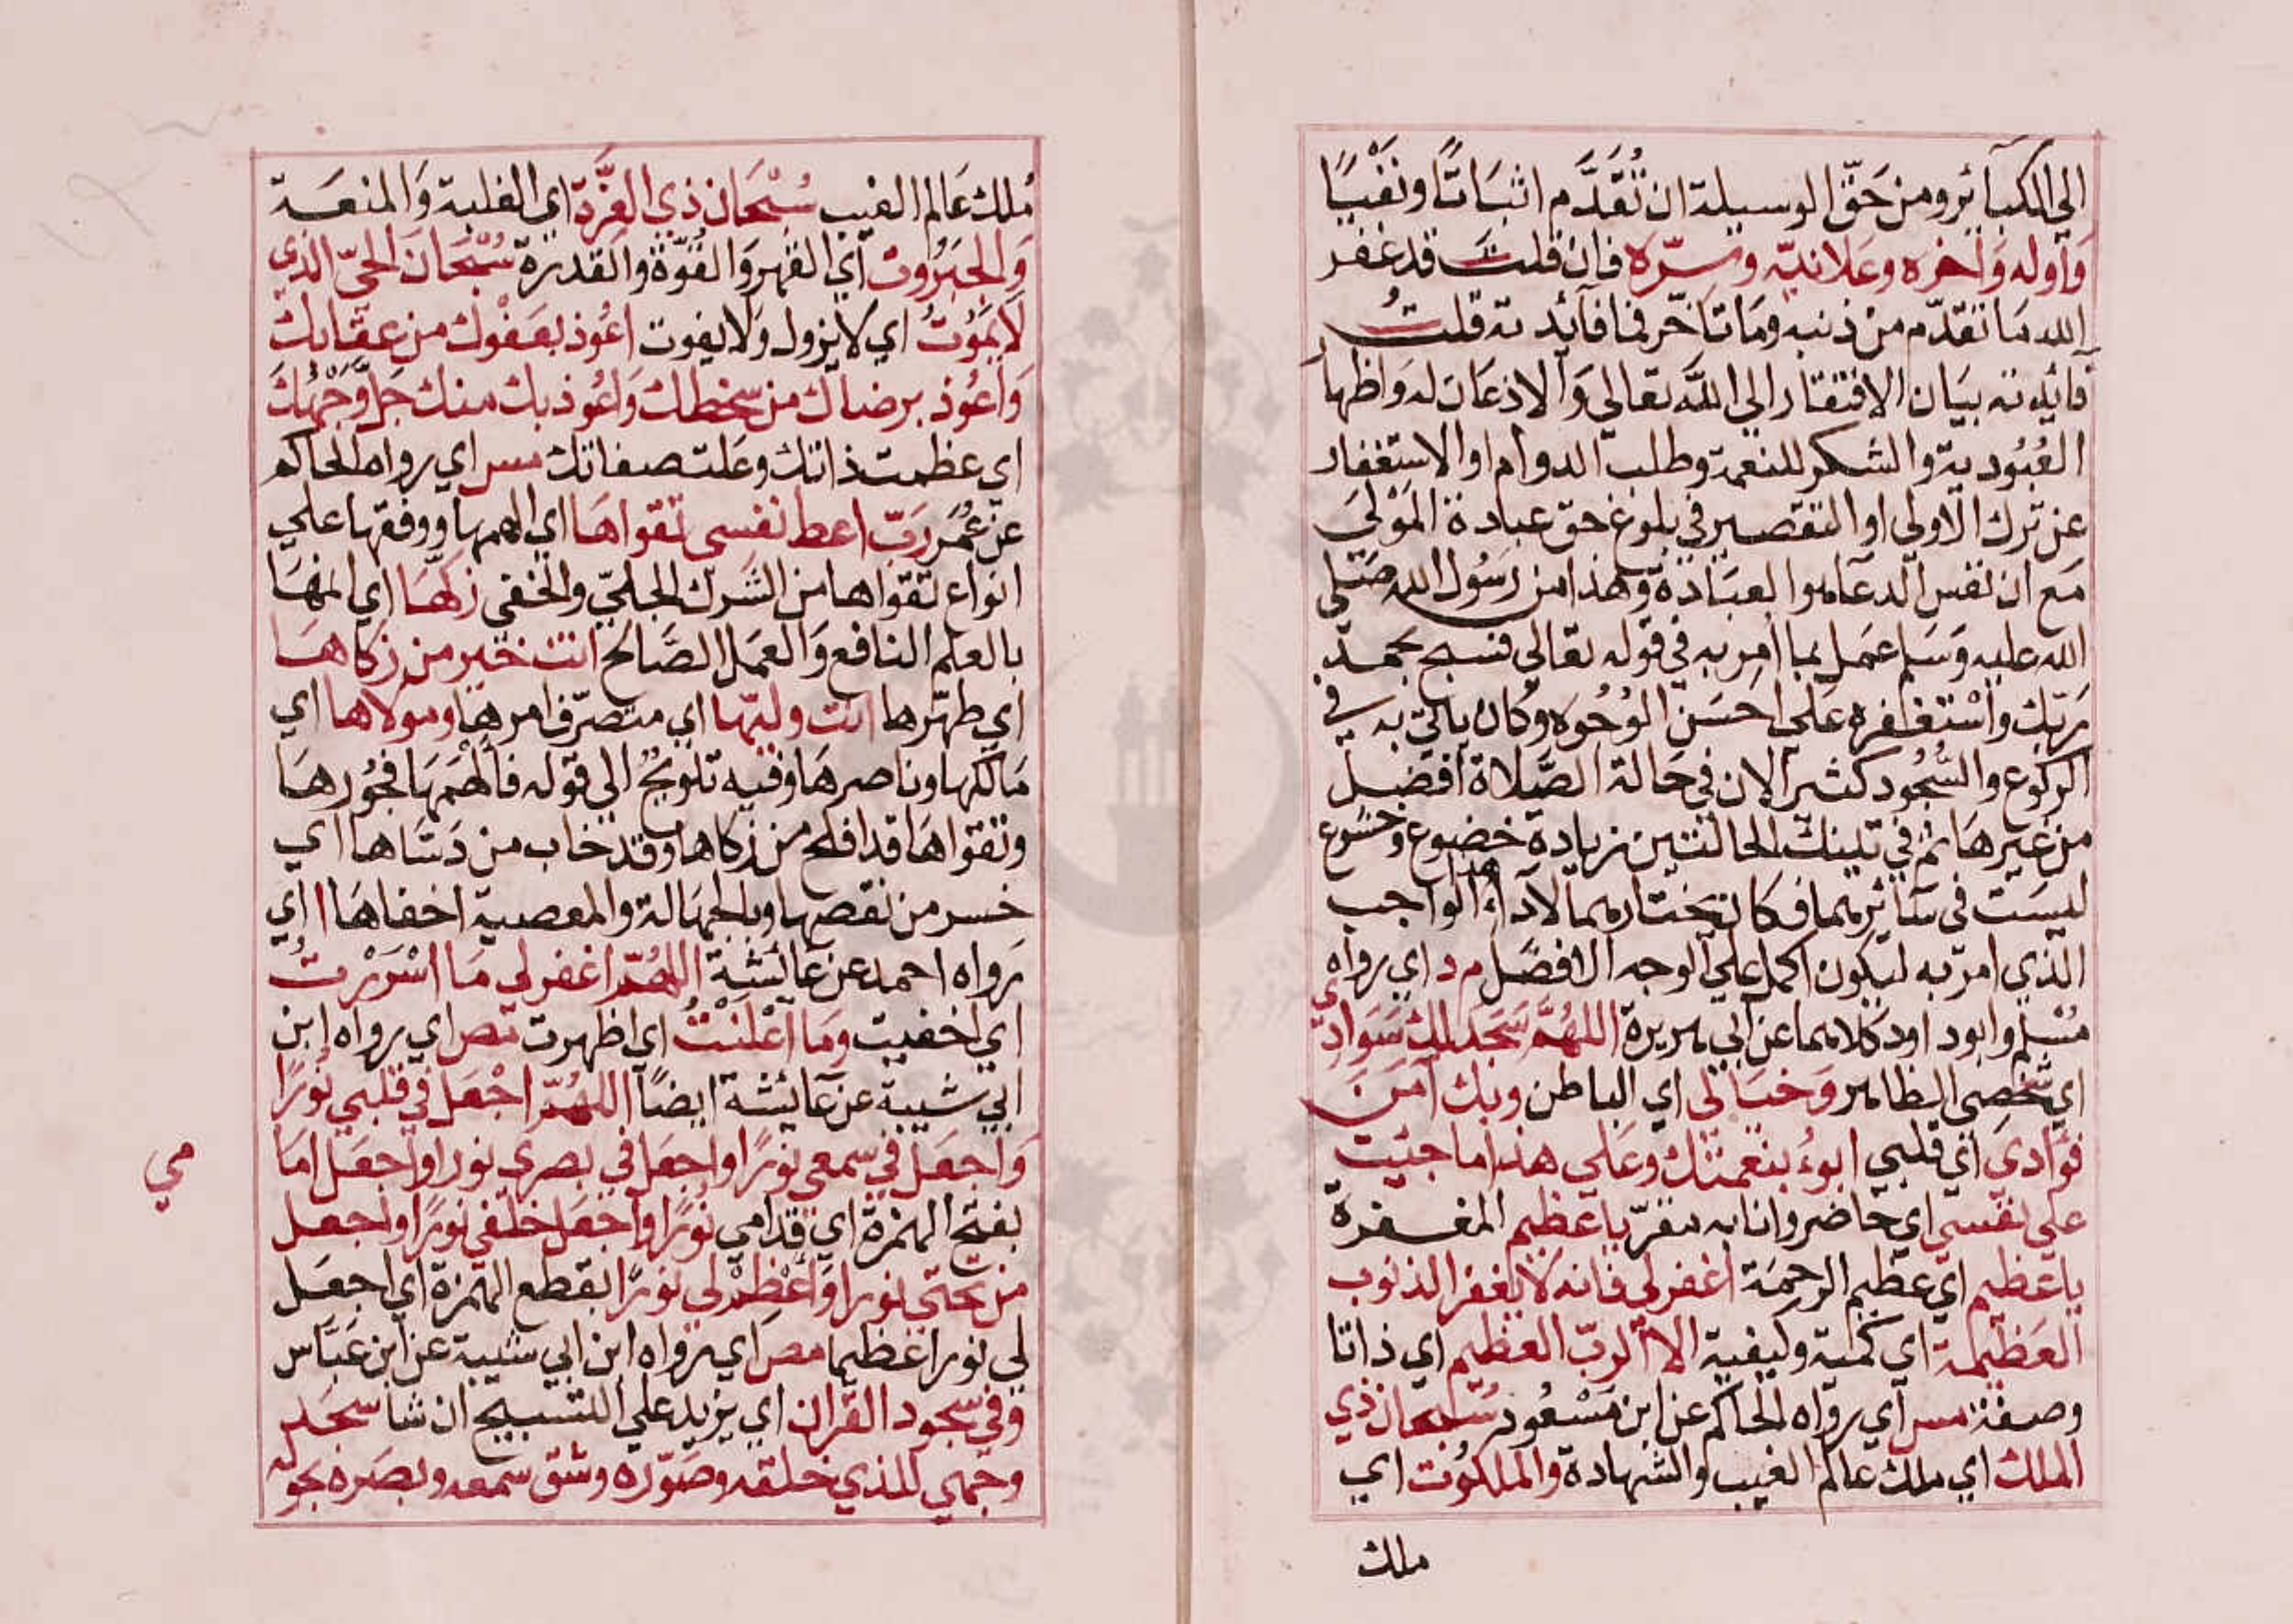 الي الكبائر ومن حَقّ الوسيلة ان تُقَدَّم اثبَاتًا ونفْيًا
وَاوله وَاخره وعَلانيّه وسِرّه فان قلتَ قد غفر
الله مَا تقدّم من ذنبه ومَا تاخّر فما فائدته قلتُ
فائدته بيَان الافتقار الي اللّه تعالي وَالاذعَان له وَاظهار
العُبُودية والشكر للنعمة وطلب الدوام او الاستغفار
عن ترك الاولي او التقصير في بلوغ حق عبادة المَوْليَ
مَع ان نفس الدعَا هو العبَادة وهذا من رسُول الله صَلّي
الله عليه وَسَلم عمَل بما امِر به في قوله تعالي فسبح بحمد
رَبّك واسْتغفره عَلي احسَن الوُجُوه وكان ياتي به في
الركوع والسُّجُود كثيرا لان في حَالة الصَّلاة افضل
من غيرهَا ثم في تينك الحالتين زيادة خضوع وخشوع
ليسَت في سَائرهما فكان يختارهما لادآء هذا الواجب
الذي امر به ليكون اكمل علي الوجه الافضَل م د اي رواه
مُسْلم وابو داود كلاهما عن ابي هريرة اللهُمَّ سَجَد لك سَوَادي
اي شخصِي الظاهر وَخيَالي اي الباطن وبك آمَنَ
فؤادي اي قلبي ابوءُ بنعمتك وعَلي هذا ما جنيت
علي نفسي اي حَاضر وانا به مقرّ يا عَظيم المغفرة
يا عَظيم اي عظيم الرحمَة اغفر لي فانه لا يغفر الذنوب
العَظيمة اي كمية وكيفية الا الربّ العظيم اي ذاتا
وصفة مس اي رواه الحَاكم عن ابن مَسْعُود سُبحان ذي
الملك اي ملك عالم الغيب والشهادة والملكوُت اي
ملك
مُلك عَالم الغيب سُبْحَان ذي العِزَّة اي الغلبة وَالمنعَة
وَالجَبَرُوت اي القهر وَالقُوّة والقدرة سُبْحَان الحيّ الذي
لا يَمُوْتُ اي لا يزول وَلا يفوت اعُوذ بعَفْوك من عقابك
وَاَعُوذ برضاك من سخطك وَاعُوذ بك منك جَلَّ وَجْهُكَ
اي عظمت ذاتك وعَلت صفاتك مس اي رواه الحاكم
عن عُمَر رَبّ اعط نفسي تقواهَا اي الهمها ووفقها علي
انواع تقواها من الشرك الجليّ والخفي زكّهَا اي انمهَا
بالعلم النافع وَالعمَل الصَّالح انت خَير من زكاهَا
اي طهّرها انت وليّها اي متصرّف امرها ومولاها اي
مَالكها وناصرهَا وفيه تلويحٌ الي قوله فَألهَمَهَا فجُورهَا
وتقواهَا قد افلح من زكاها وقد خاب من دَسّاها اي
خسر من نقصها وبالجهَالة والمعصية اخفاهَا ا اي
رَواه احمد عن عَائشة اللهُمّ اغفر لي مَا اسْرَرْتُ
اي اخفيت ومَا اعْلنْتُ اي اظهرت مص اي رواه ابن
ابي شيبة عن عَائشة ايضًا اللهُمّ اجْعَل في قلبي نُورًا
وَاجعَل في سمعي نورًا واجعَل في بصري نورا واجعَل امَا
مي
بفتح الهمزة اي قدامي نُورًا وَاجعَل خلفي نورًا واجعل
من تحتي نورا وَأَعْظِمْ لي نورًا بقطع الهمزة اي اجعَل
لي نورا عَظيما مص اي رواه ابن ابي شيبة عن ابن عَبّاس
وَفي سجُود القرآن اي يزيد علي التسبيح ان شا سجَد
وجهي للذي خلقه وصَوّره وشق سمعه وبصَره بحوْله